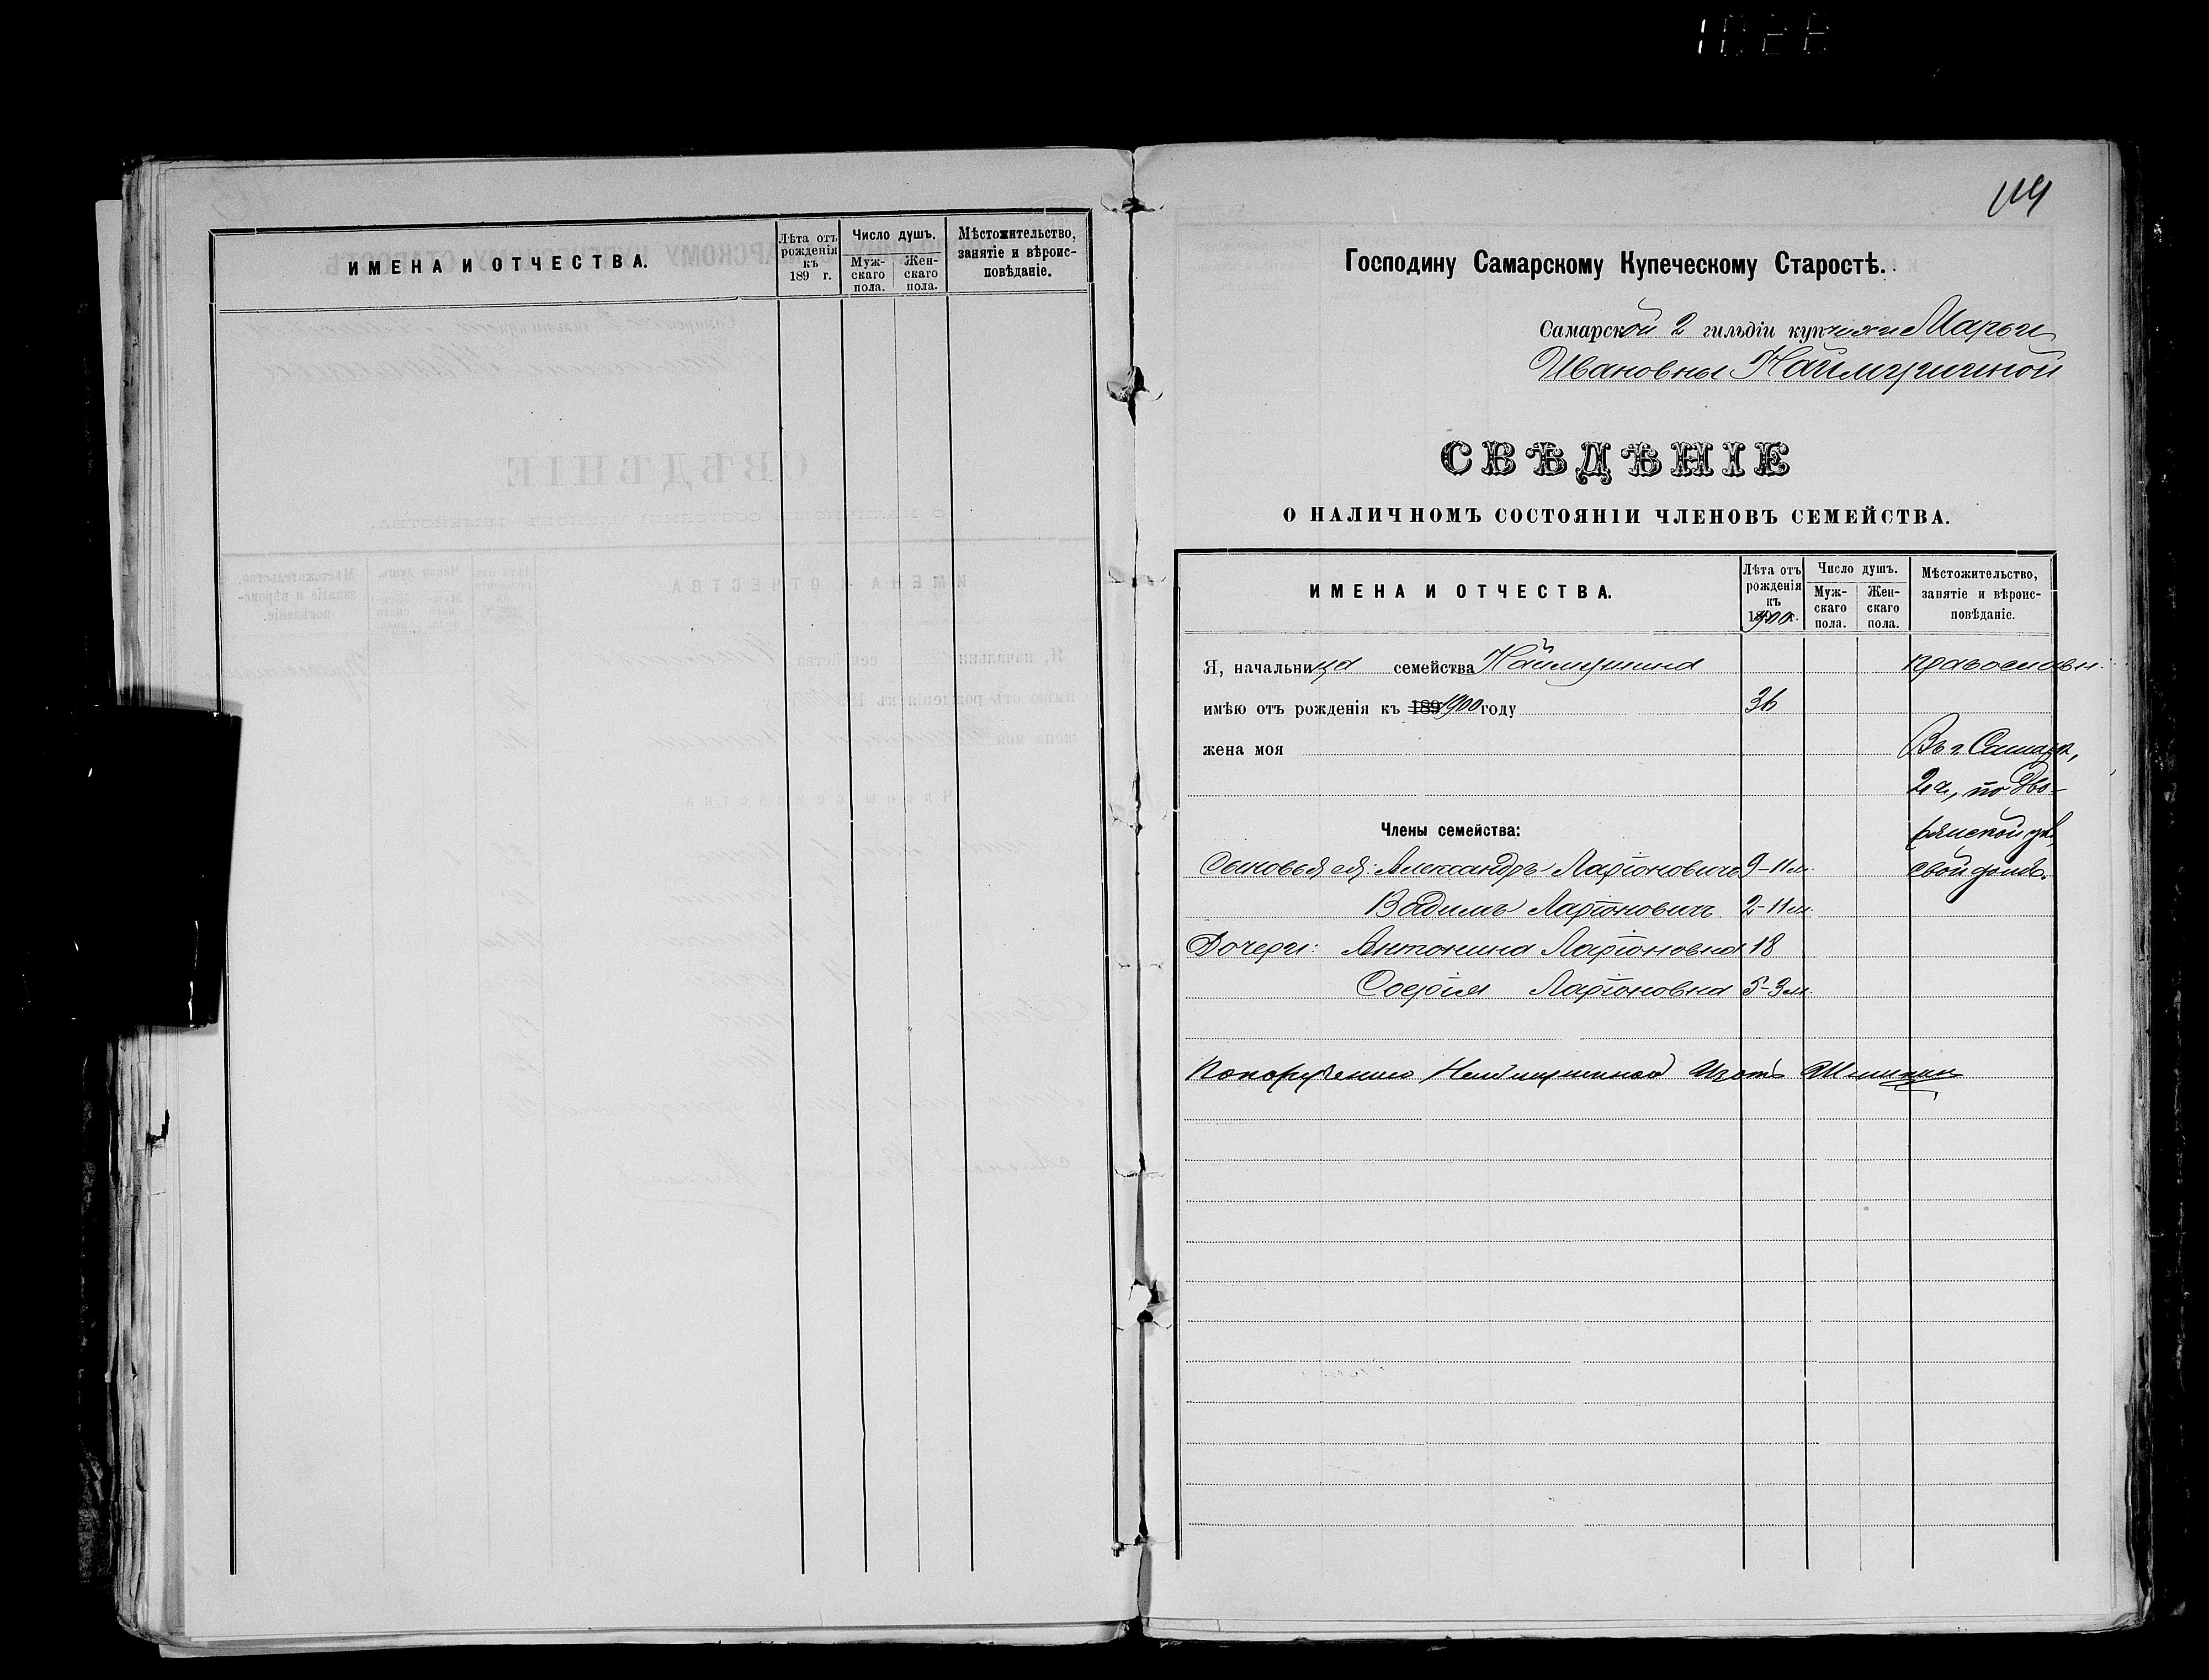 ИМЕНА И ОТЧЕСТВА.
Лѣта отъ рожденія къ 189 г.
Число душъ.
Мужскаго пола.
Женскаго пола.
Мѣстожительство, занятіе и вѣроисповѣданіе.
114
Господину Самарскому Купеческому Старостѣ.
Самарской 2 гильдіи купчихи Марьи
Ивановны Наймушиной
СВѢДѢНІЕ
О НАЛИЧНОМЪ СОСТОЯНІИ ЧЛЕНОВЪ СЕМЕЙСТВА.
ИМЕНА И ОТЧЕСТВА.
Лѣта отъ рожденія къ 1900 г.
Число душъ.
Мужскаго пола.
Женскаго пола.
Мѣстожительство, занятіе и вѣроисповѣданіе.
Я, начальница семейства Наймушина православн.
имѣю отъ рожденія къ 189 1900 году 36
жена моя Въ г. Самарѣ,
2 ч., по Дво-
Члены семейства: рянской ул.
Сыновья ея: Александръ Ларіоновичъ 9-11 м. свой домъ.
Вадимъ Ларіоновичъ 2-11 м.
Дочери: Антонина Ларіоновна 18
Софія Ларіоновна 5-3 м.
По порученію Наймушиной